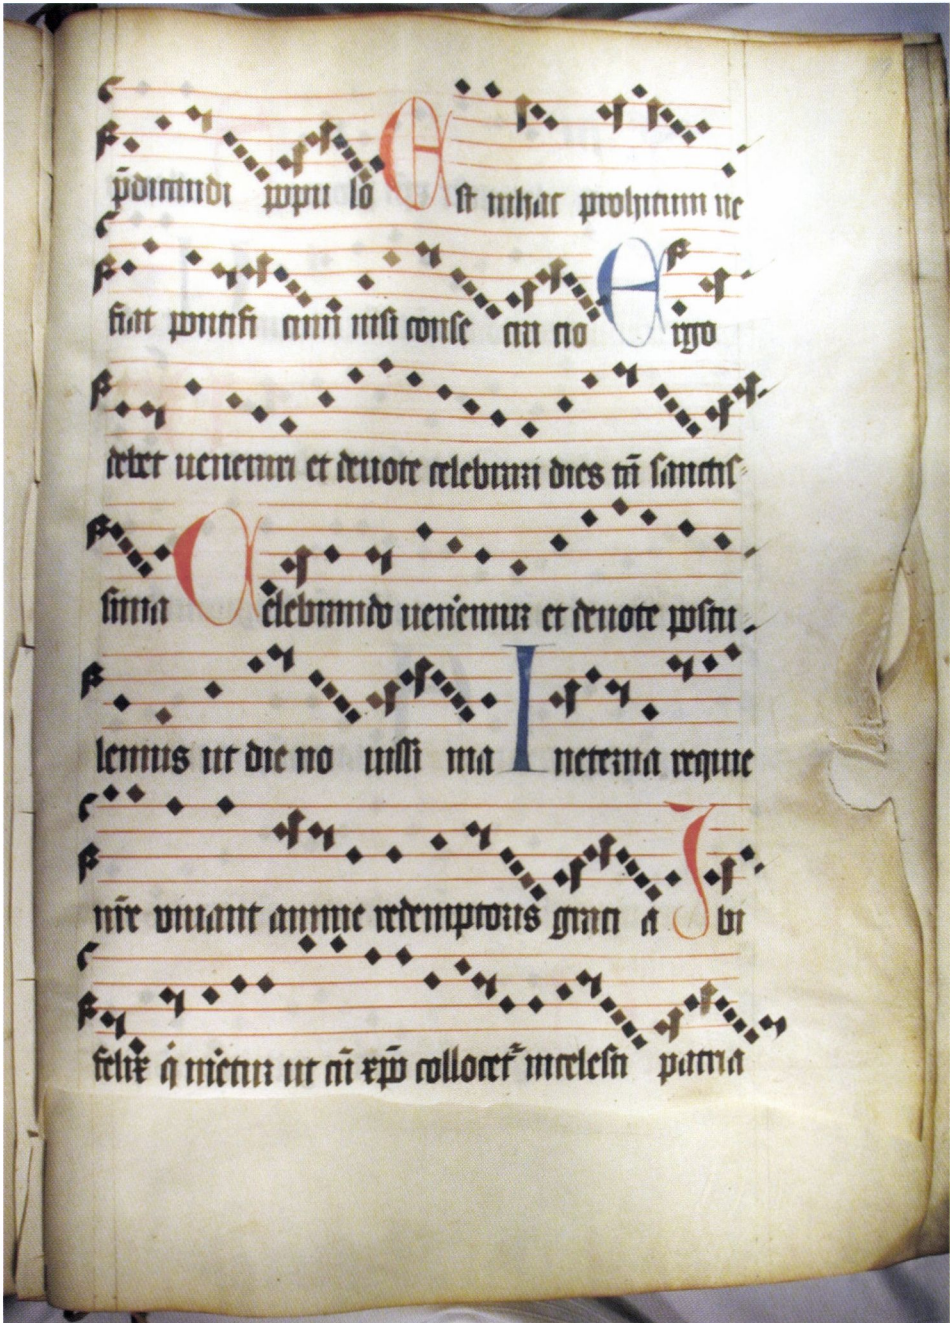 p̄dicandi popu lo Est inhac prohitum ne
fiat pontifi cium nisi conse cra cio Ergo
debet uenerari et deuote celebrari dies tā sanctis-
sima Celebrando ueneremur et deuote postu-
lemus ut die no uissi ma In eterna requie
nr̄e viuant anime redemptoris graci a Vbi
felix q̄ meretur ut cū xp̄o colloceť in celesti patria